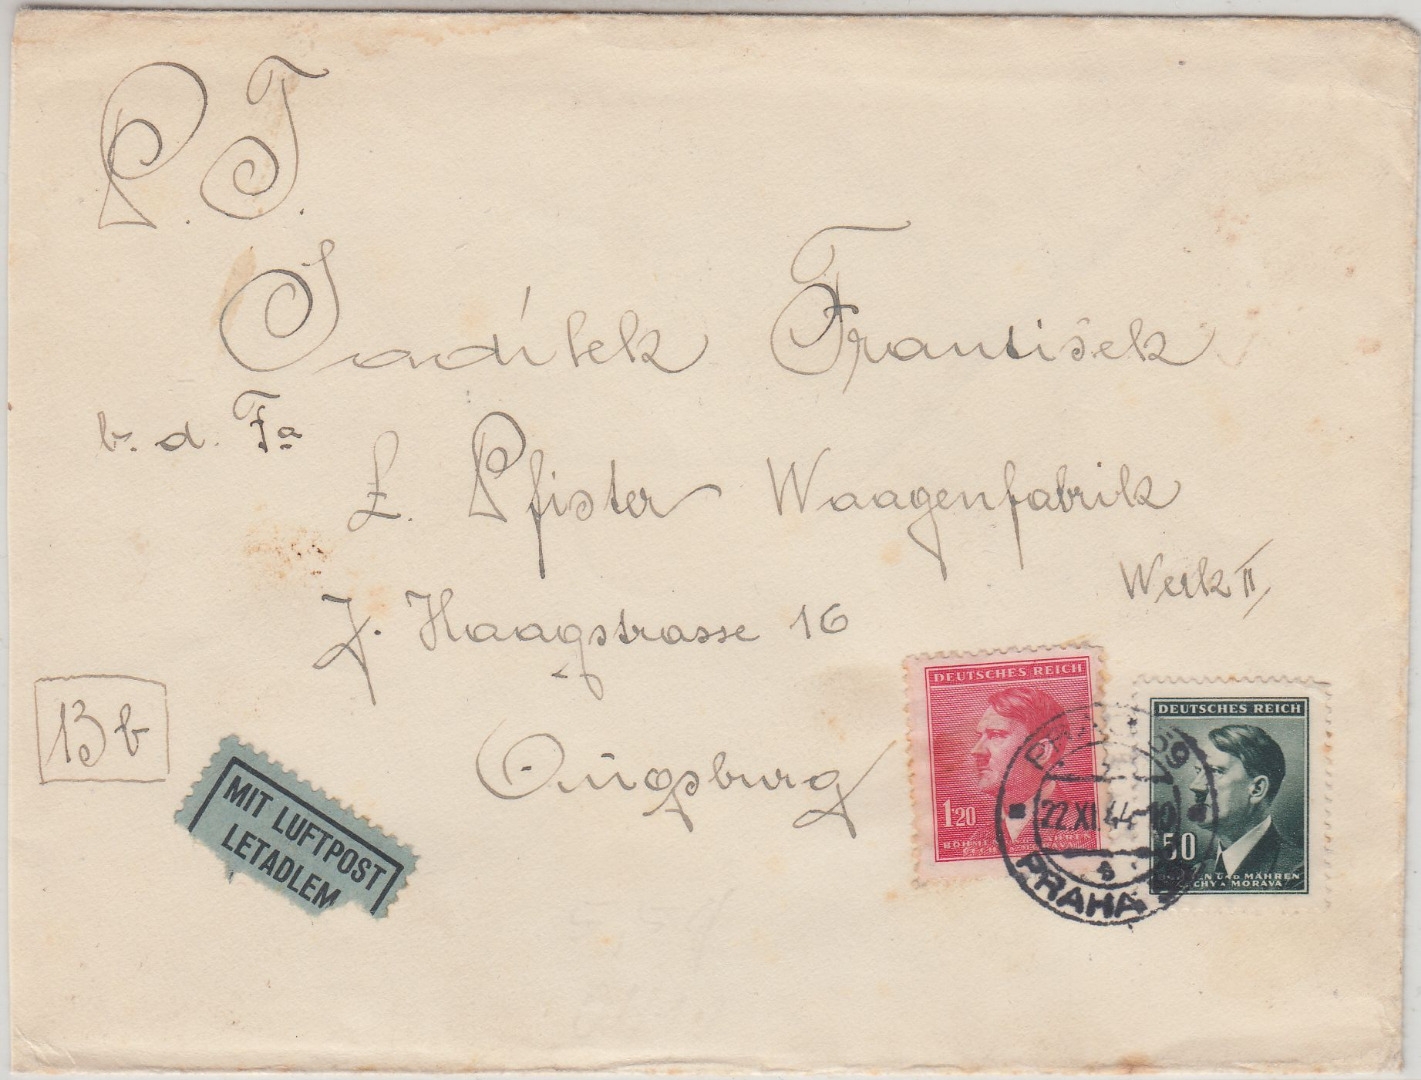 P. T.
Sadílek František
b. d. Fa
L. Pfister Waagenfabrik
Werk II
J. Haagstrasse 16
13b
Augsburg
MIT LUFTPOST
LETADLEM
DEUTSCHES REICH
1.20
BÖHMEN UND MÄHREN
ČECHY A MORAVA
DEUTSCHES REICH
50
BÖHMEN UND MÄHREN
ČECHY A MORAVA
22.XI.44-10
PRAHA